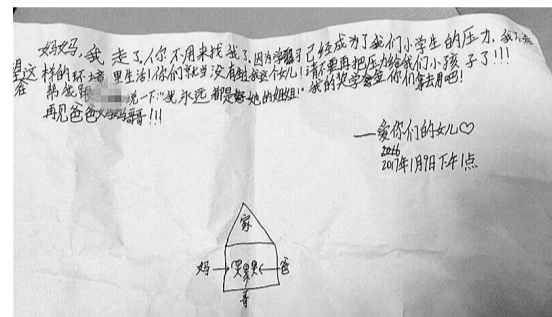 妈妈,我走了,你不用来找我了,因为学习已经成为了我们小学生的压力,我不希
望在这样的环境里生活!你们就当没有生我这个女儿!请不要再把压力给我们小孩子了!!!
替我跟 说一下:"我永远都是她的好姐姐!"我的奖学金你们拿去用吧!
再见爸爸妈妈哥哥!!!
——爱你们的女儿♡
2016
2017年1月9日下午1点
家
妈 爸
哥